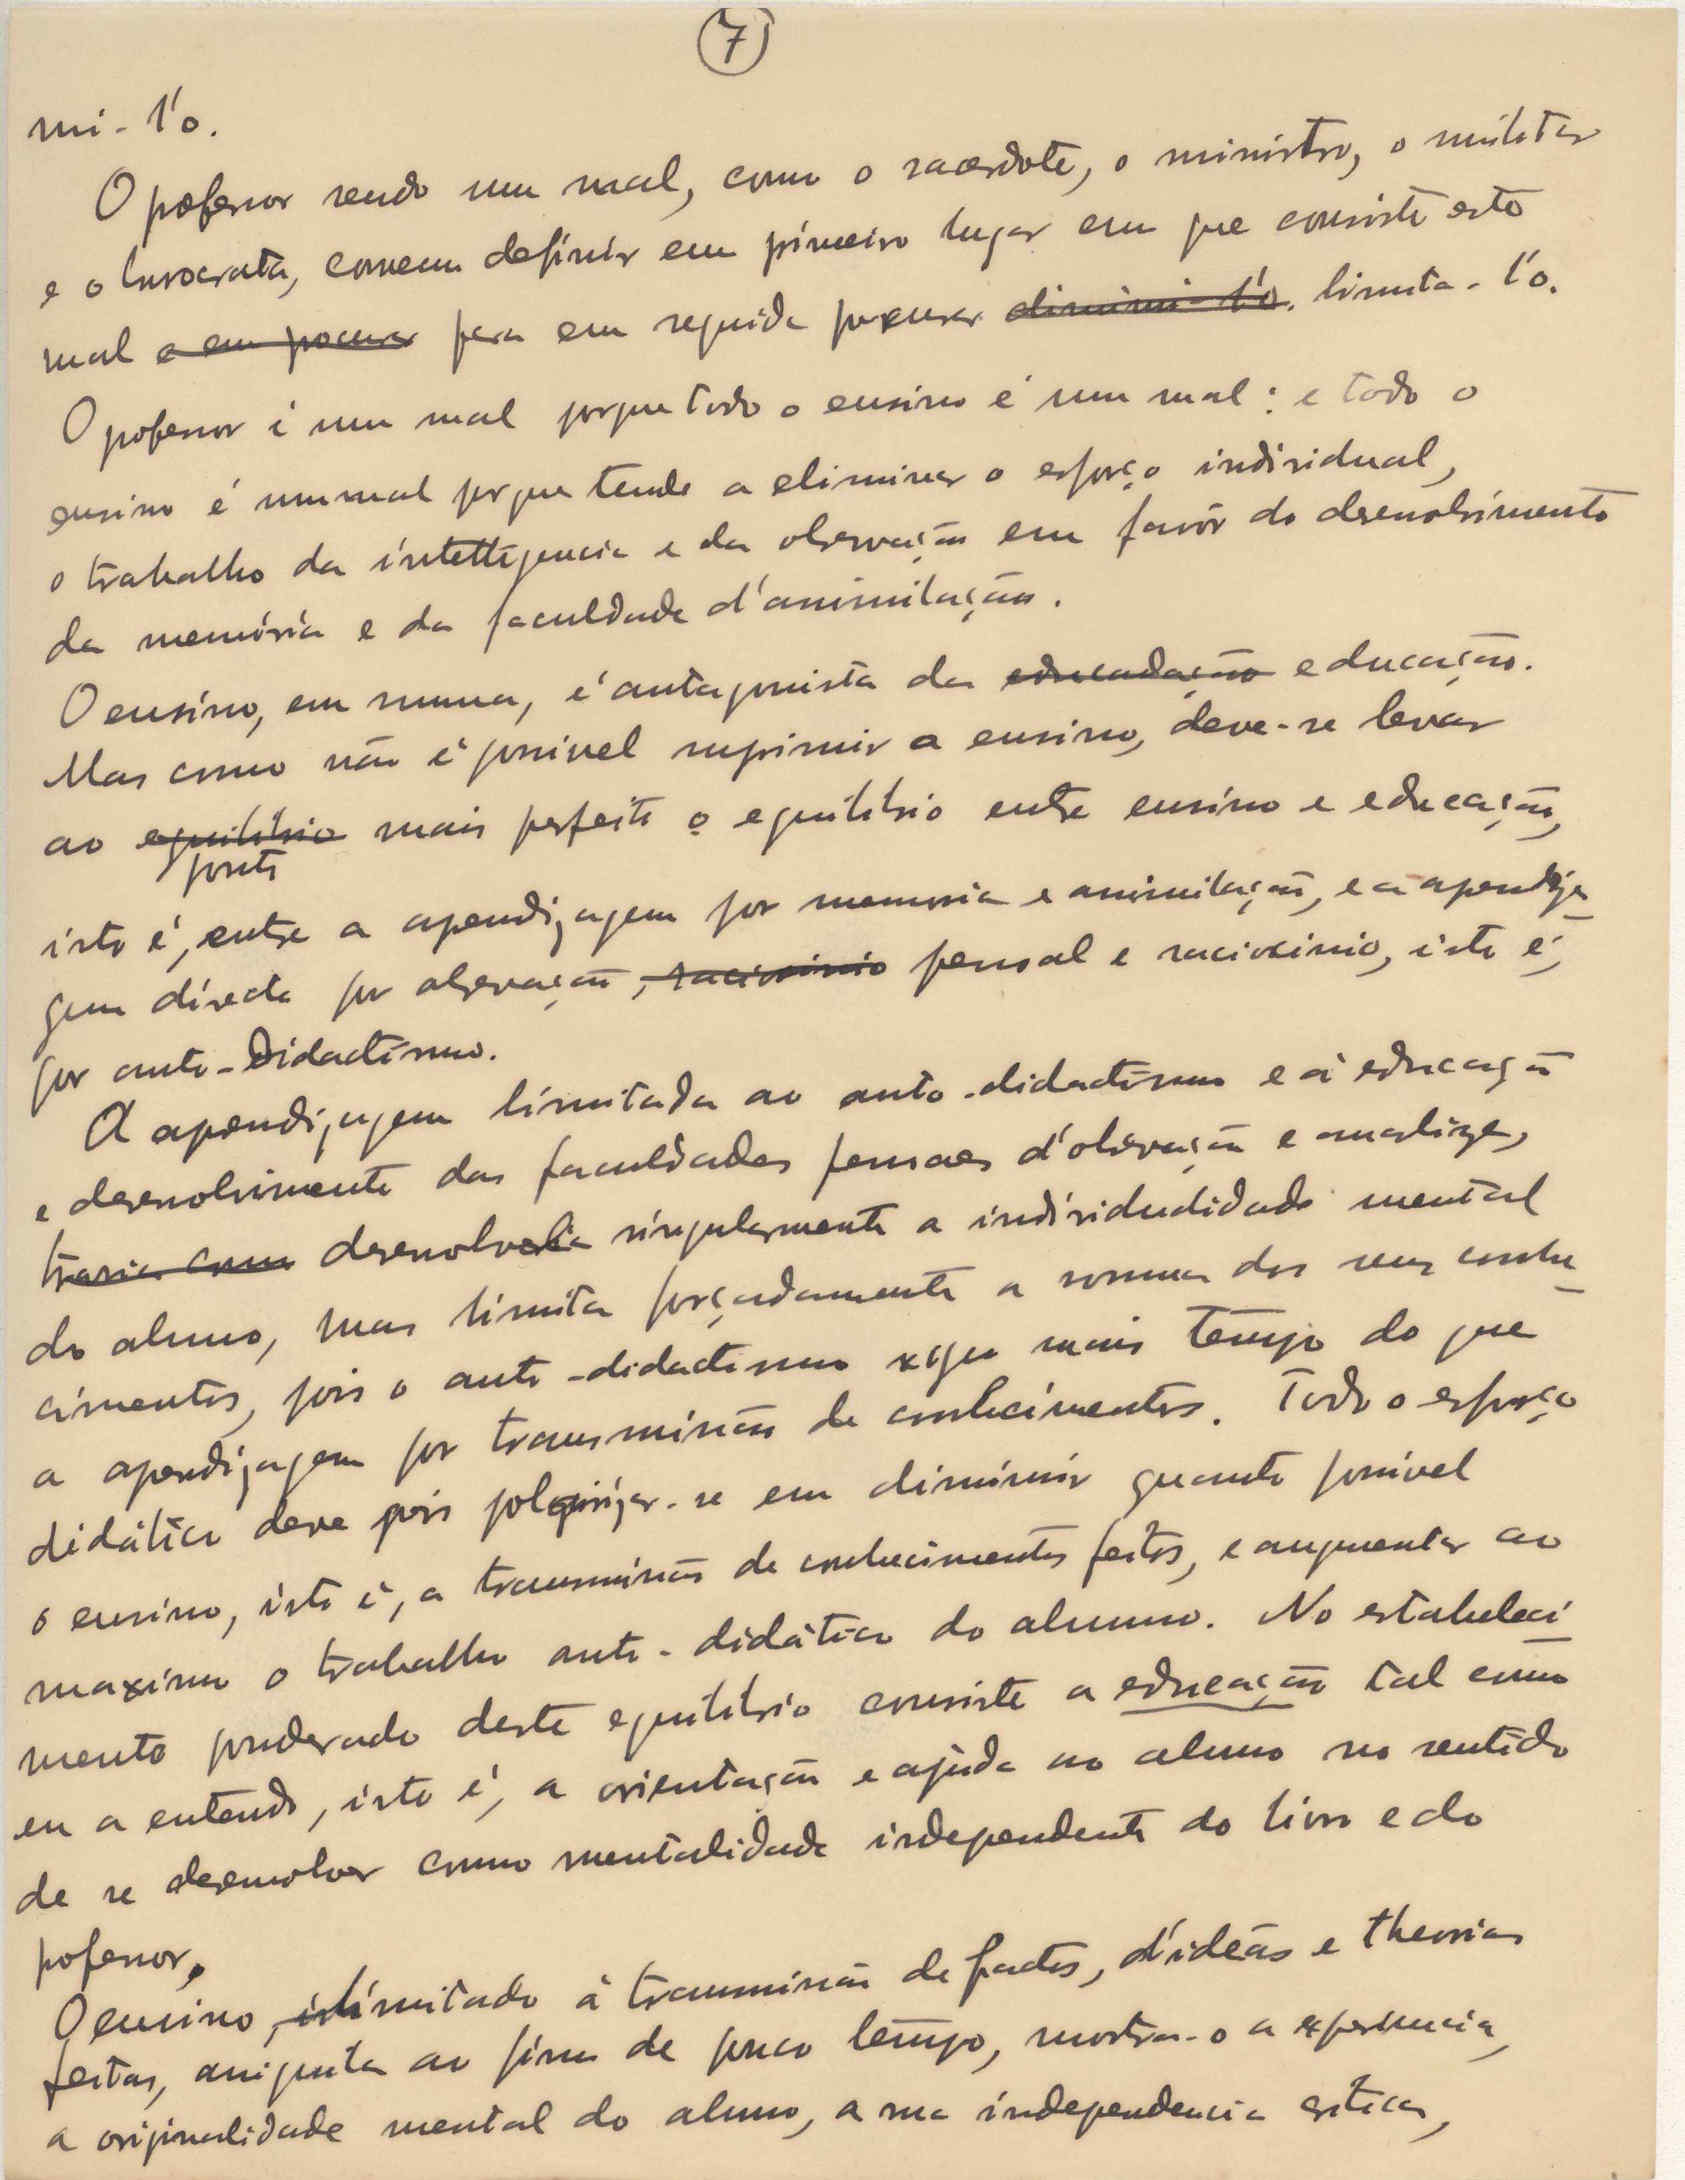 7
mi-l'o.
O professor sendo um mal, como o sacerdote, o ministro, o militar
e o burocrata, convem definir em primeiro lugar em que consiste este
mal e em procurar para em seguida procurar diminui-l'o. limita-l'o.
O professor é um mal porque todo o ensino é um mal: e todo o
ensino é um mal porque tende a eliminar o esforço individual,
o trabalho da intelligencia e da observação em favôr do desenvolvimento
da memória e da faculdade d'assimilação.
O ensino, em summa, é antagonista da educadação educação.
Mas como não é possivel suprimir o ensino, deve-se levar
ao equilibrio mais perfeito o equilibrio entre ensino e educação,
ponto
isto é, entre a aprendizagem por memoria e assimilação, e a aprendiza-
gem directa por observação, raciocinio pessoal e raciocinio, isto é,
por auto-didactismo.
A aprendizagem limitada ao auto-didactismo e á educação
e desenvolvimento das faculdades pessoaes d'observação e analize,
traria como desenvolveria singularmente a individualidade mental
do aluno, mas limita forçadamente a somma dos seus conhe-
cimentos, pois o auto-didactismo exige mais tempo do que
a aprendizagem por transmissão de conhecimentos. Todo o esforço
didático deve pois polarizar-se em diminuir quanto possivel
o ensino, isto é, a transmissão de conhecimentos feitos, e augmentar ao
maximo o trabalho auto-didático do alumno. No estabeleci-
mento ponderado deste equilibrio consiste a educação tal como
eu a entendo, isto é, a orientação e ajuda ao aluno no sentido
de se desenvolver como mentalidade independente do livro e do
professor.
O ensino, limitado á transmissão de factos, d'idêas e theorias
feitas, aniquila ao fim de pouco tempo, mostra-o a experiencia,
a originalidade mental do aluno, a sua independencia critica,